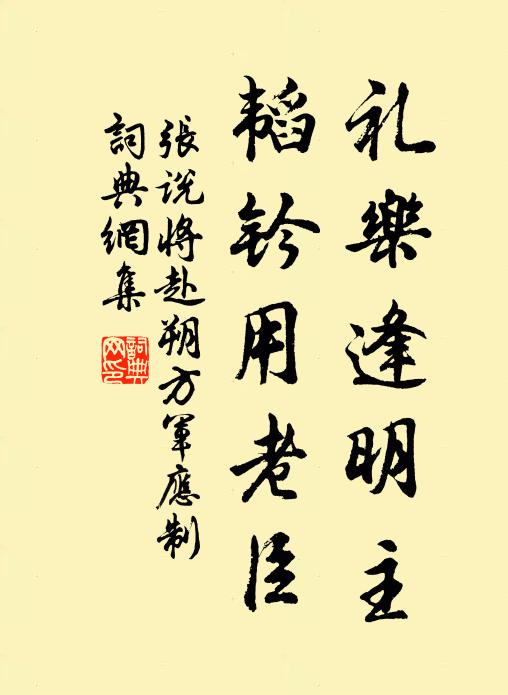 礼樂逢明主
韜鈐用老臣
張說將赴朔方軍應制
詞典網集
詞典網印